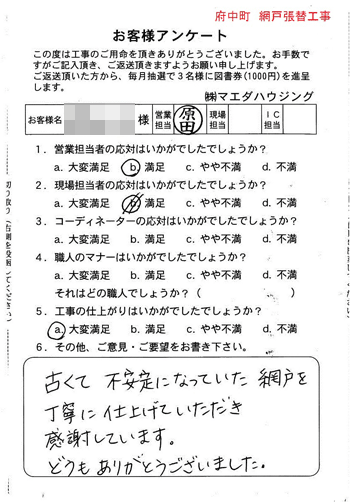 府中町 網戸張替工事
お客様アンケート
この度は工事のご用命を頂きありがとうございました。お手数で
すがご記入頂き、ご返送頂きますようお願い申し上げます。
ご返送頂いた方から、毎月抽選で3名様に図書券(1000円)を進呈
します。
㈱マエダハウジング
お客様名 様 営業担当 原田 現場担当 IC担当
1．営業担当者の応対はいかがでしたでしょうか？
a. 大変満足 b. 満足 c. やや不満 d. 不満
2．現場担当者の応対はいかがでしたでしょうか？
a. 大変満足 b. 満足 c. やや不満 d. 不満
3．コーディネーターの応対はいかがでしたでしょうか？
a. 大変満足 b. 満足 c. やや不満 d. 不満
4．職人のマナーはいかがでしたでしょうか？
a. 大変満足 b. 満足 c. やや不満 d. 不満
それはどの職人でしょうか？（ ）
5．工事の仕上がりはいかがでしたでしょうか？
a. 大変満足 b. 満足 c. やや不満 d. 不満
6．その他、ご意見・ご要望をお書き下さい。
古くて 不安定になっていた 網戸を
丁寧に 仕上げていただき
感謝しています。
どうも ありがとうございました。
切り取り（右側を投函してください）